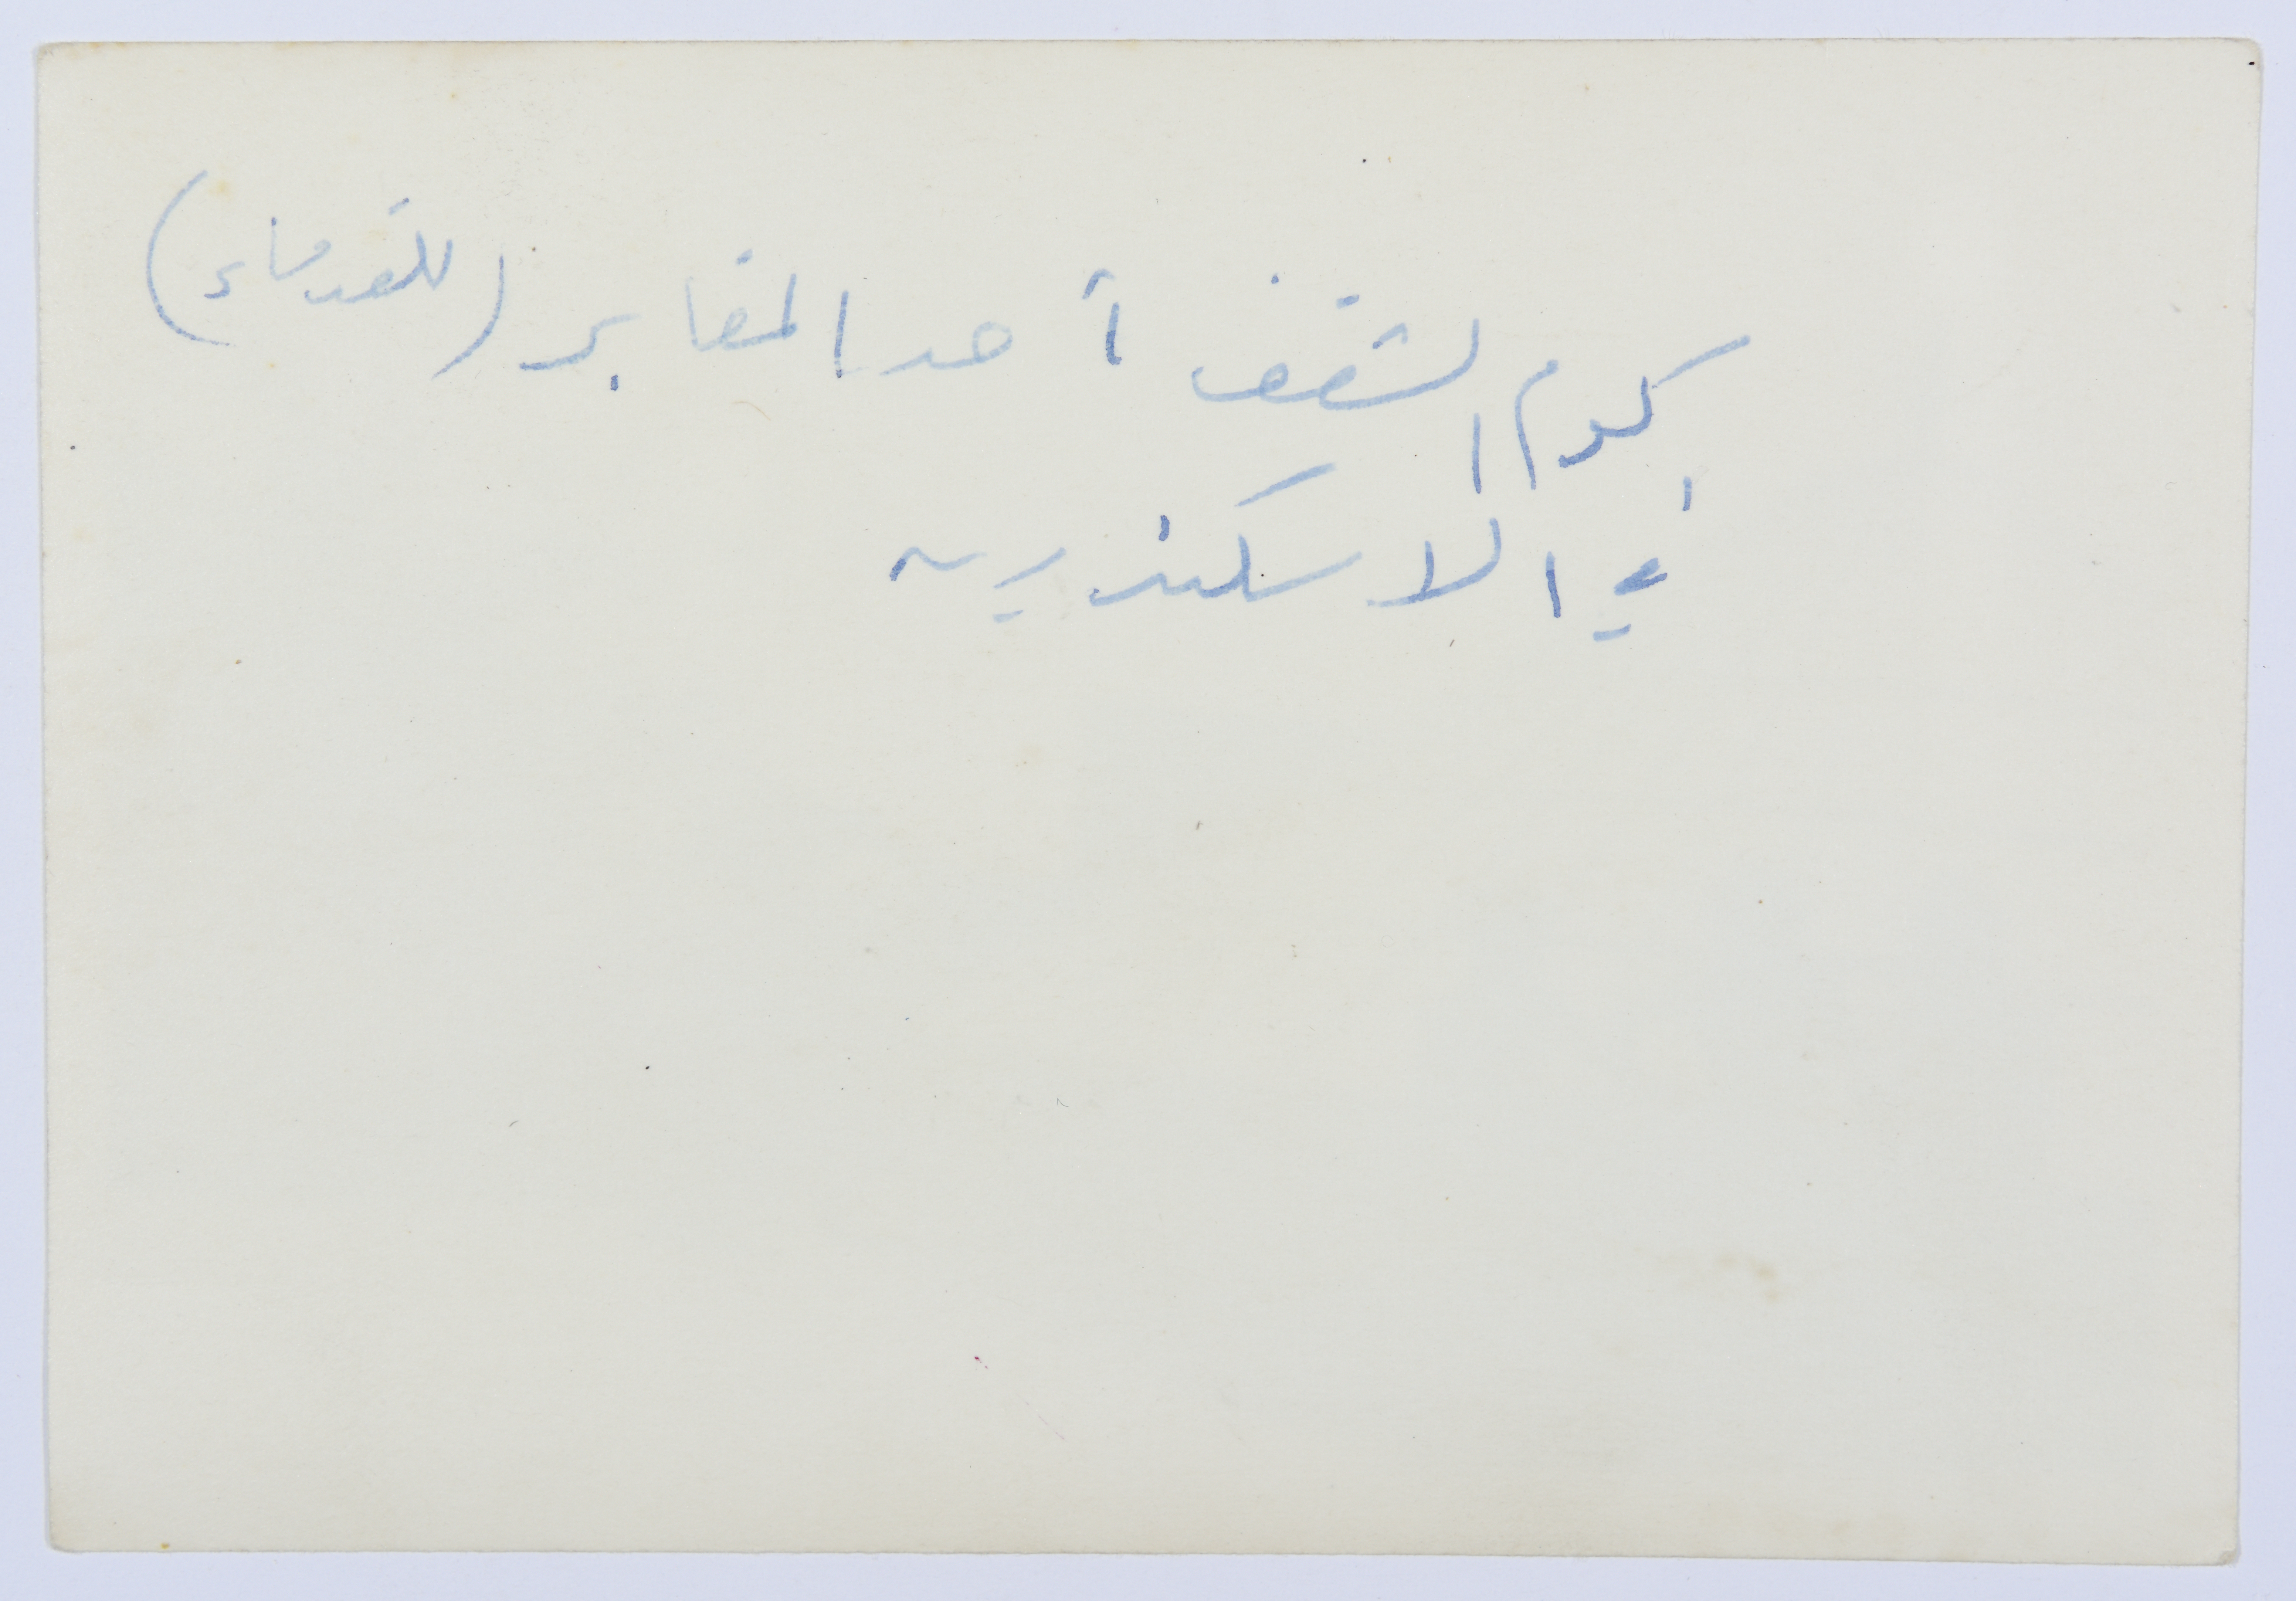 كوم الشقف أحد المقابر (للقدماء)
في الاسكندريه